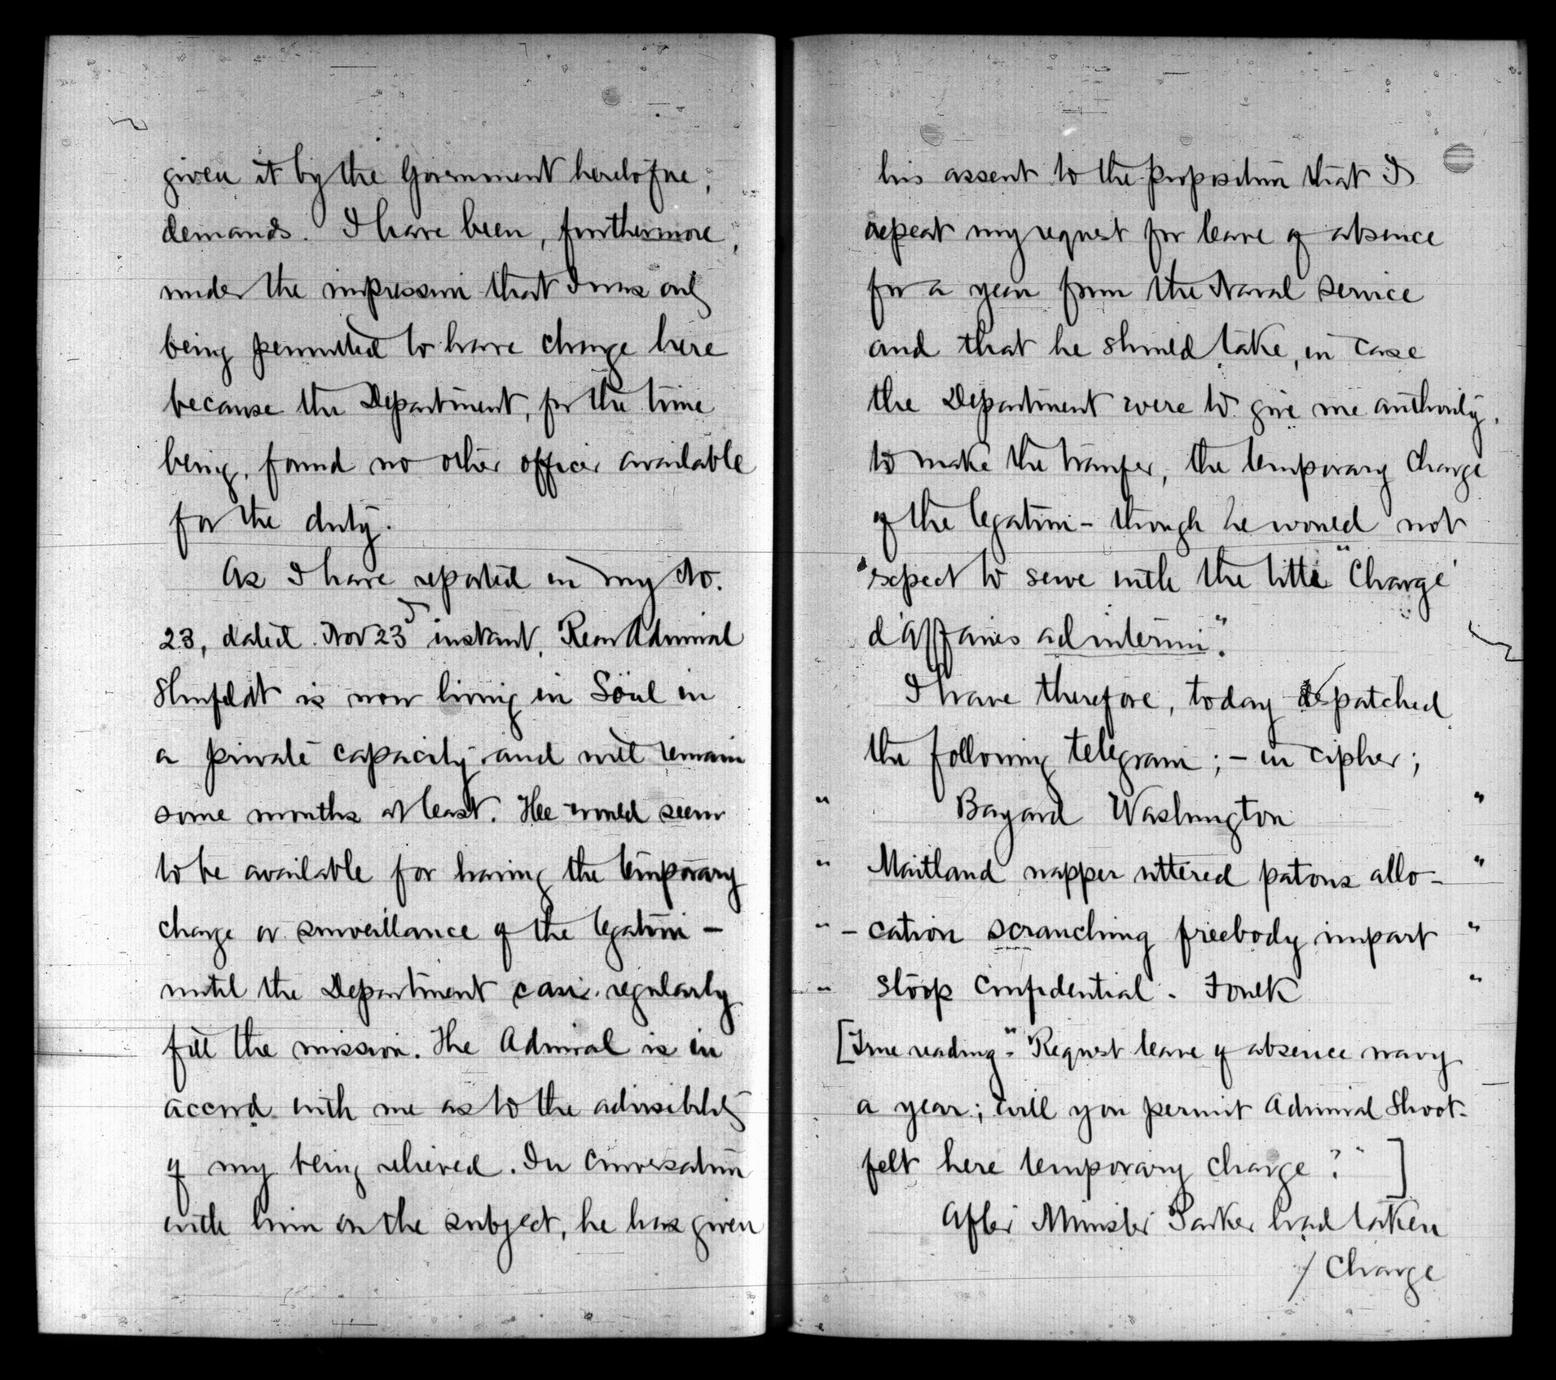 given it by the Government heretofore,
demands. I have been, furthermore,
under the impression that I was only
being permitted to have charge here
because the Department, for the time
being, found no other officer available
for the duty.
As I have reported in my No.
23, dated Nov 23d instant, Rear Admiral
Shufeldt is now living in Söul in
a private capacity and will remain
some months at least. He would seem
to be available for having the temporary
charge or surveillance of the legation -
until the Department can regularly
fill the mission. The Admiral is in
accord with me as to the advisability
of my being relieved. In conversation
with him on the subject, he has given
his assent to the proposition that I
repeat my request for leave of absence
for a year from the Naval Service
and that he should take, in case
the Department were to give me authority,
to make the transfer, the temporary charge
of the legation - though he would not
expect to serve with the title "Charge'
d'Affaires ad interim".
I have therefore, today despatched
the following telegram; - in cipher;
" Bayard Washington "
" Maitland napper uttered patons allo- "
" - cation scranching freebody impart "
" stoop Confidential. Foulk "
[True reading. "Request leave of absence navy
a year; will you permit Admiral Shoot-
felt here temporary charge?" ]
After Minister Parker had taken
/ Charge